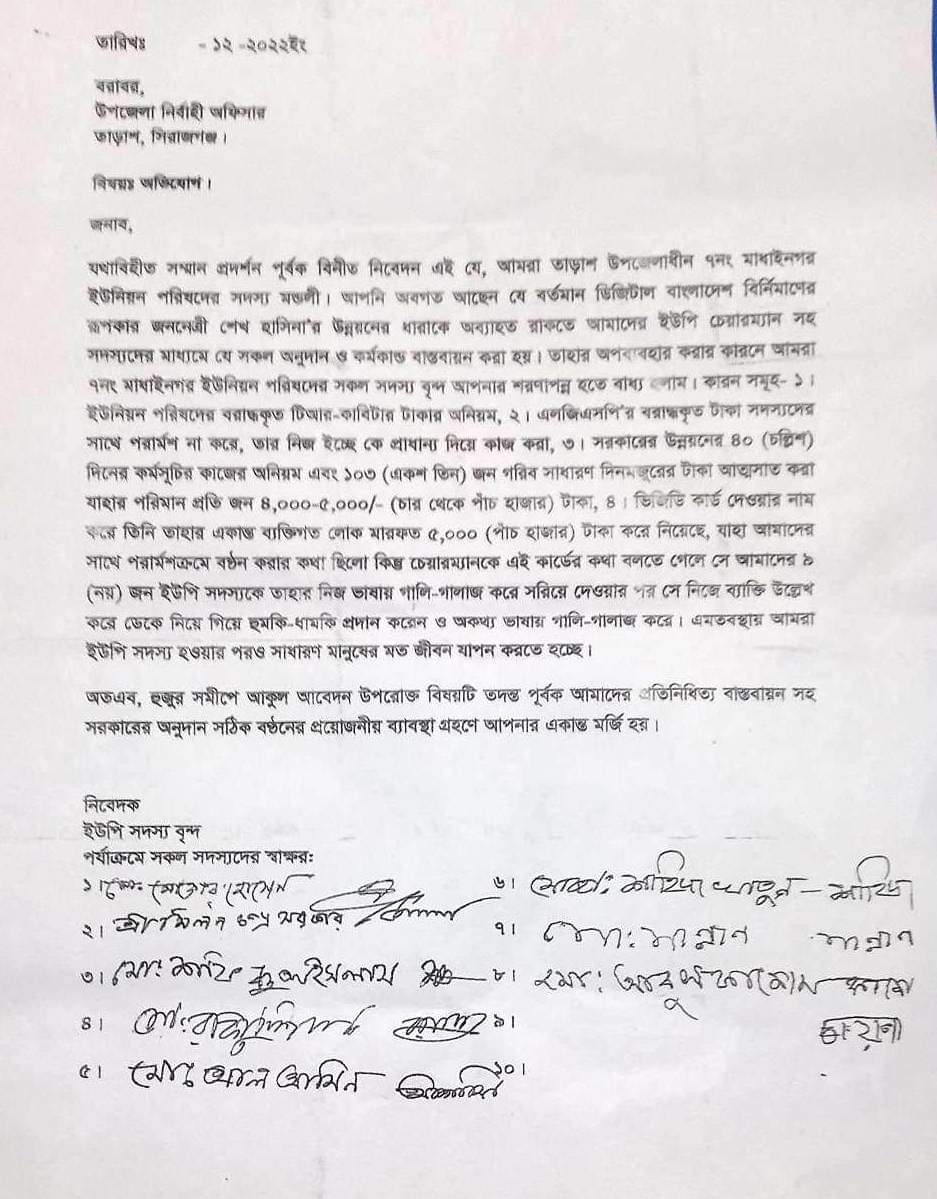 তারিখঃ - ১২ -২০২২ইং
বরাবর,
উপজেলা নির্বাহী অফিসার
তাড়াশ, সিরাজগঞ্জ।
বিষয়ঃ অভিযোগ।
জনাব,
যথাবিহীত সম্মান প্রদর্শন পূর্বক বিনীত নিবেদন এই যে, আমরা তাড়াশ উপজেলাধীন ৭নং মাধাইনগর
ইউনিয়ন পরিষদের সদস্য মন্ডলী। আপনি অবগত আছেন যে বর্তমান ডিজিটাল বাংলাদেশ বির্নিমাণের
রূপকার জননেত্রী শেখ হাসিনা'র উন্নয়নের ধারাকে অব্যাহত রাকতে আমাদের ইউপি চেয়ারম্যান সহ
সদস্যদের মাধ্যমে যে সকল অনুদান ও কর্মকান্ড বাস্তবায়ন করা হয়। তাহার অপব্যবহার করার কারনে আমরা
৭নং মাধাইনগর ইউনিয়ন পরিষদের সকল সদস্য বৃন্দ আপনার শরণাপন্ন হতে বাধ্য হলাম। কারন সমূহ- ১।
ইউনিয়ন পরিষদের বরাদ্ধকৃত টিআর-কাবিটার টাকার অনিয়ম, ২। এলজিএসপি'র বরাদ্ধকৃত টাকা সদস্যদের
সাথে পরার্মশ না করে, তার নিজ ইচ্ছে কে প্রাধান্য দিয়ে কাজ করা, ৩। সরকারের উন্নয়নের ৪০ (চল্লিশ)
দিনের কর্মসূচির কাজের অনিয়ম এবং ১০৩ (একশ তিন) জন গরিব সাধারণ দিনমজুরের টাকা আত্মসাত করা
যাহার পরিমান প্রতি জন ৪,০০০-৫,০০০/- (চার থেকে পাঁচ হাজার) টাকা, ৪। ভিজিডি কার্ড দেওয়ার নাম
করে তিনি তাহার একান্ত ব্যক্তিগত লোক মারফত ৫,০০০ (পাঁচ হাজার) টাকা করে নিয়েছে, যাহা আমাদের
সাথে পরার্মশক্রমে বন্ঠন করার কথা ছিলো কিন্তু চেয়ারম্যানকে এই কার্ডের কথা বলতে গেলে সে আমাদের ৯
(নয়) জন ইউপি সদস্যকে তাহার নিজ ভাষায় গালি-গালাজ করে সরিয়ে দেওয়ার পর সে নিজে ব্যাক্তি উল্লেখ
করে ডেকে নিয়ে গিয়ে হুমকি-ধামকি প্রদান করেন ও অকথ্য ভাষায় গালি-গালাজ করে। এমতবস্থায় আমরা
ইউপি সদস্য হওয়ার পরও সাধারণ মানুষের মত জীবন যাপন করতে হচ্ছে।
অতএব, হুজুর সমীপে আকুল আবেদন উপরোক্ত বিষয়টি তদন্ত পূর্বক আমাদের প্রতিনিধিত্ব বাস্তবায়ন সহ
সরকারের অনুদান সঠিক বন্ঠনের প্রয়োজনীয় ব্যাবস্থা গ্রহণে আপনার একান্ত মর্জি হয়।
নিবেদক
ইউপি সদস্য বৃন্দ
পর্যাক্রমে সকল সদস্যদের স্বাক্ষর:
১। মোঃ হোসেন
২। শ্রী মিলন চন্দ্র সরকার
৩। মোঃ
৪। মোঃ
৫। মোঃ আল আমিন
৬। মোছাঃ খাতুন –
৭। মোঃ মান্নান মান্নান
৮। মোঃ আবুল কালাম
৯।
১০।